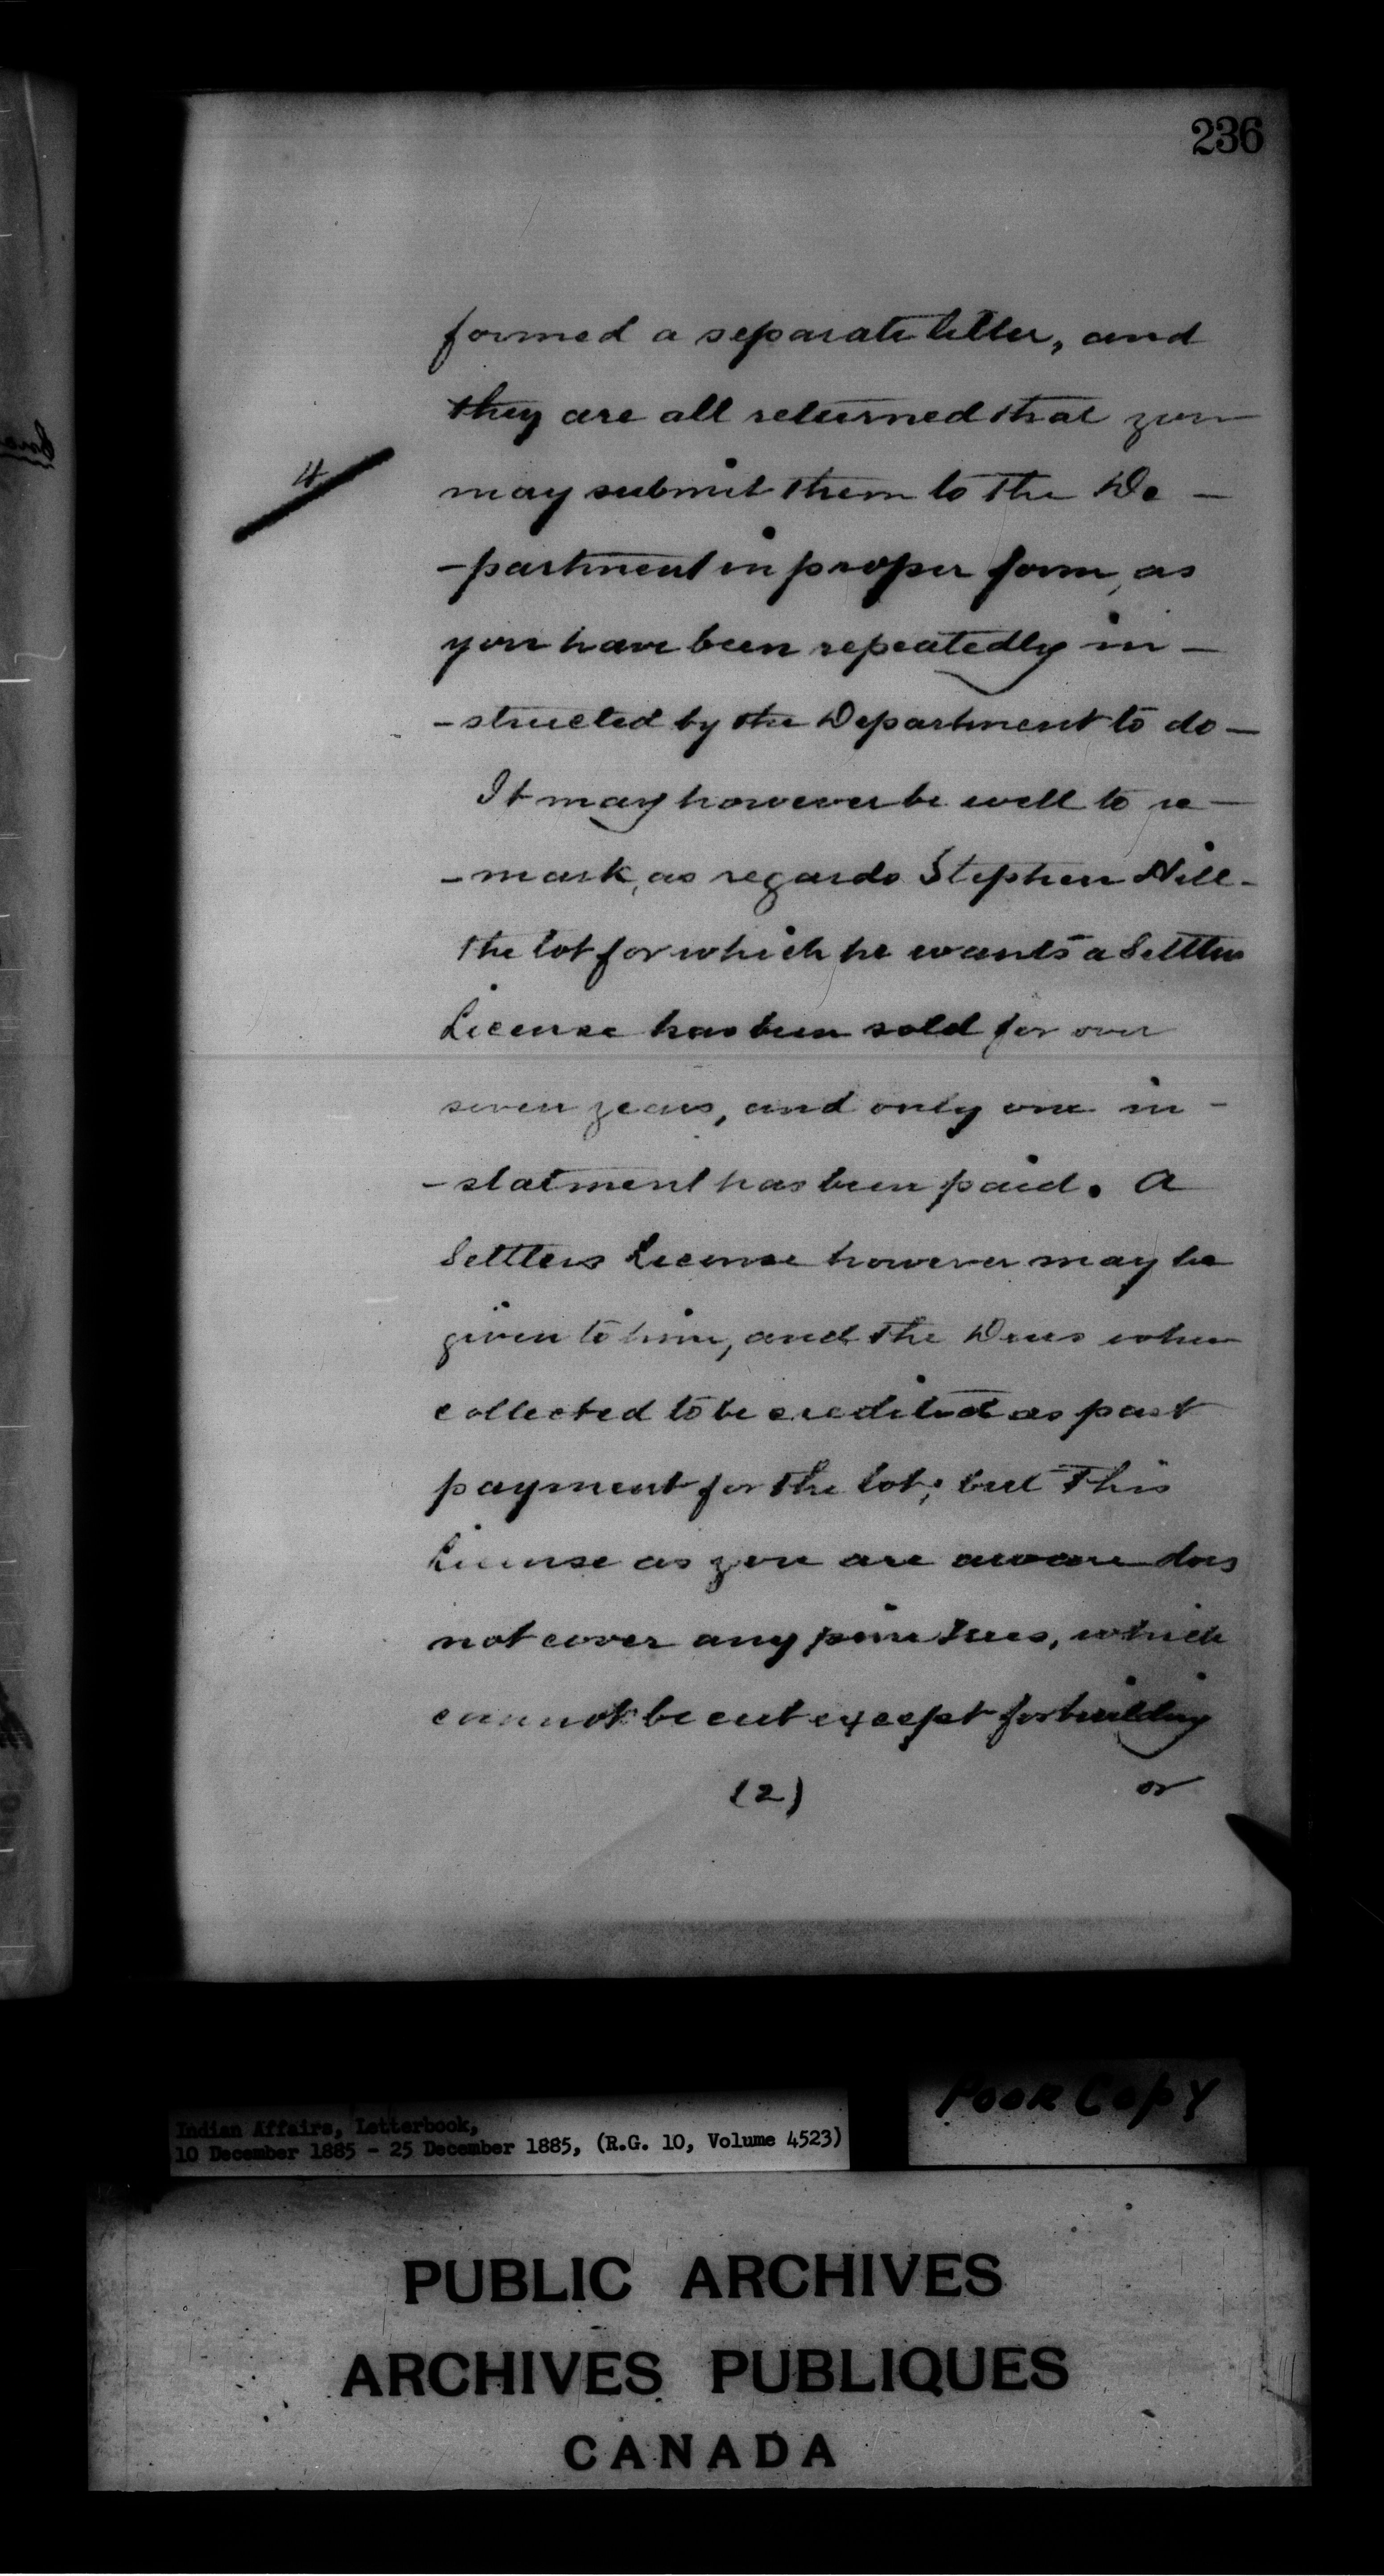 236
formed a separate letter, and
they are all returned that you
4
may submit them to the De -
- partment in proper form, as
you have been repeatedly in -
- structed by the Department to do -
It may however be well to re -
- mark, as regards Stephen Hill -
the lot for which he wants a Settlers
License has been sold for over
seven years, and only one in -
- stalment has been paid. A
Settlers License however may be
given to him, and the Dues when
collected to be credited as part
payment for the lot; but this
License as you are aware does
not cover any pine trees, which
cannot be cut except for building
(2) or
Poor Copy
Indian Affairs, Letterbook,
10 December 1885 - 25 December 1885, (R.G. 10, Volume 4523)
PUBLIC ARCHIVES
ARCHIVES PUBLIQUES
CANADA